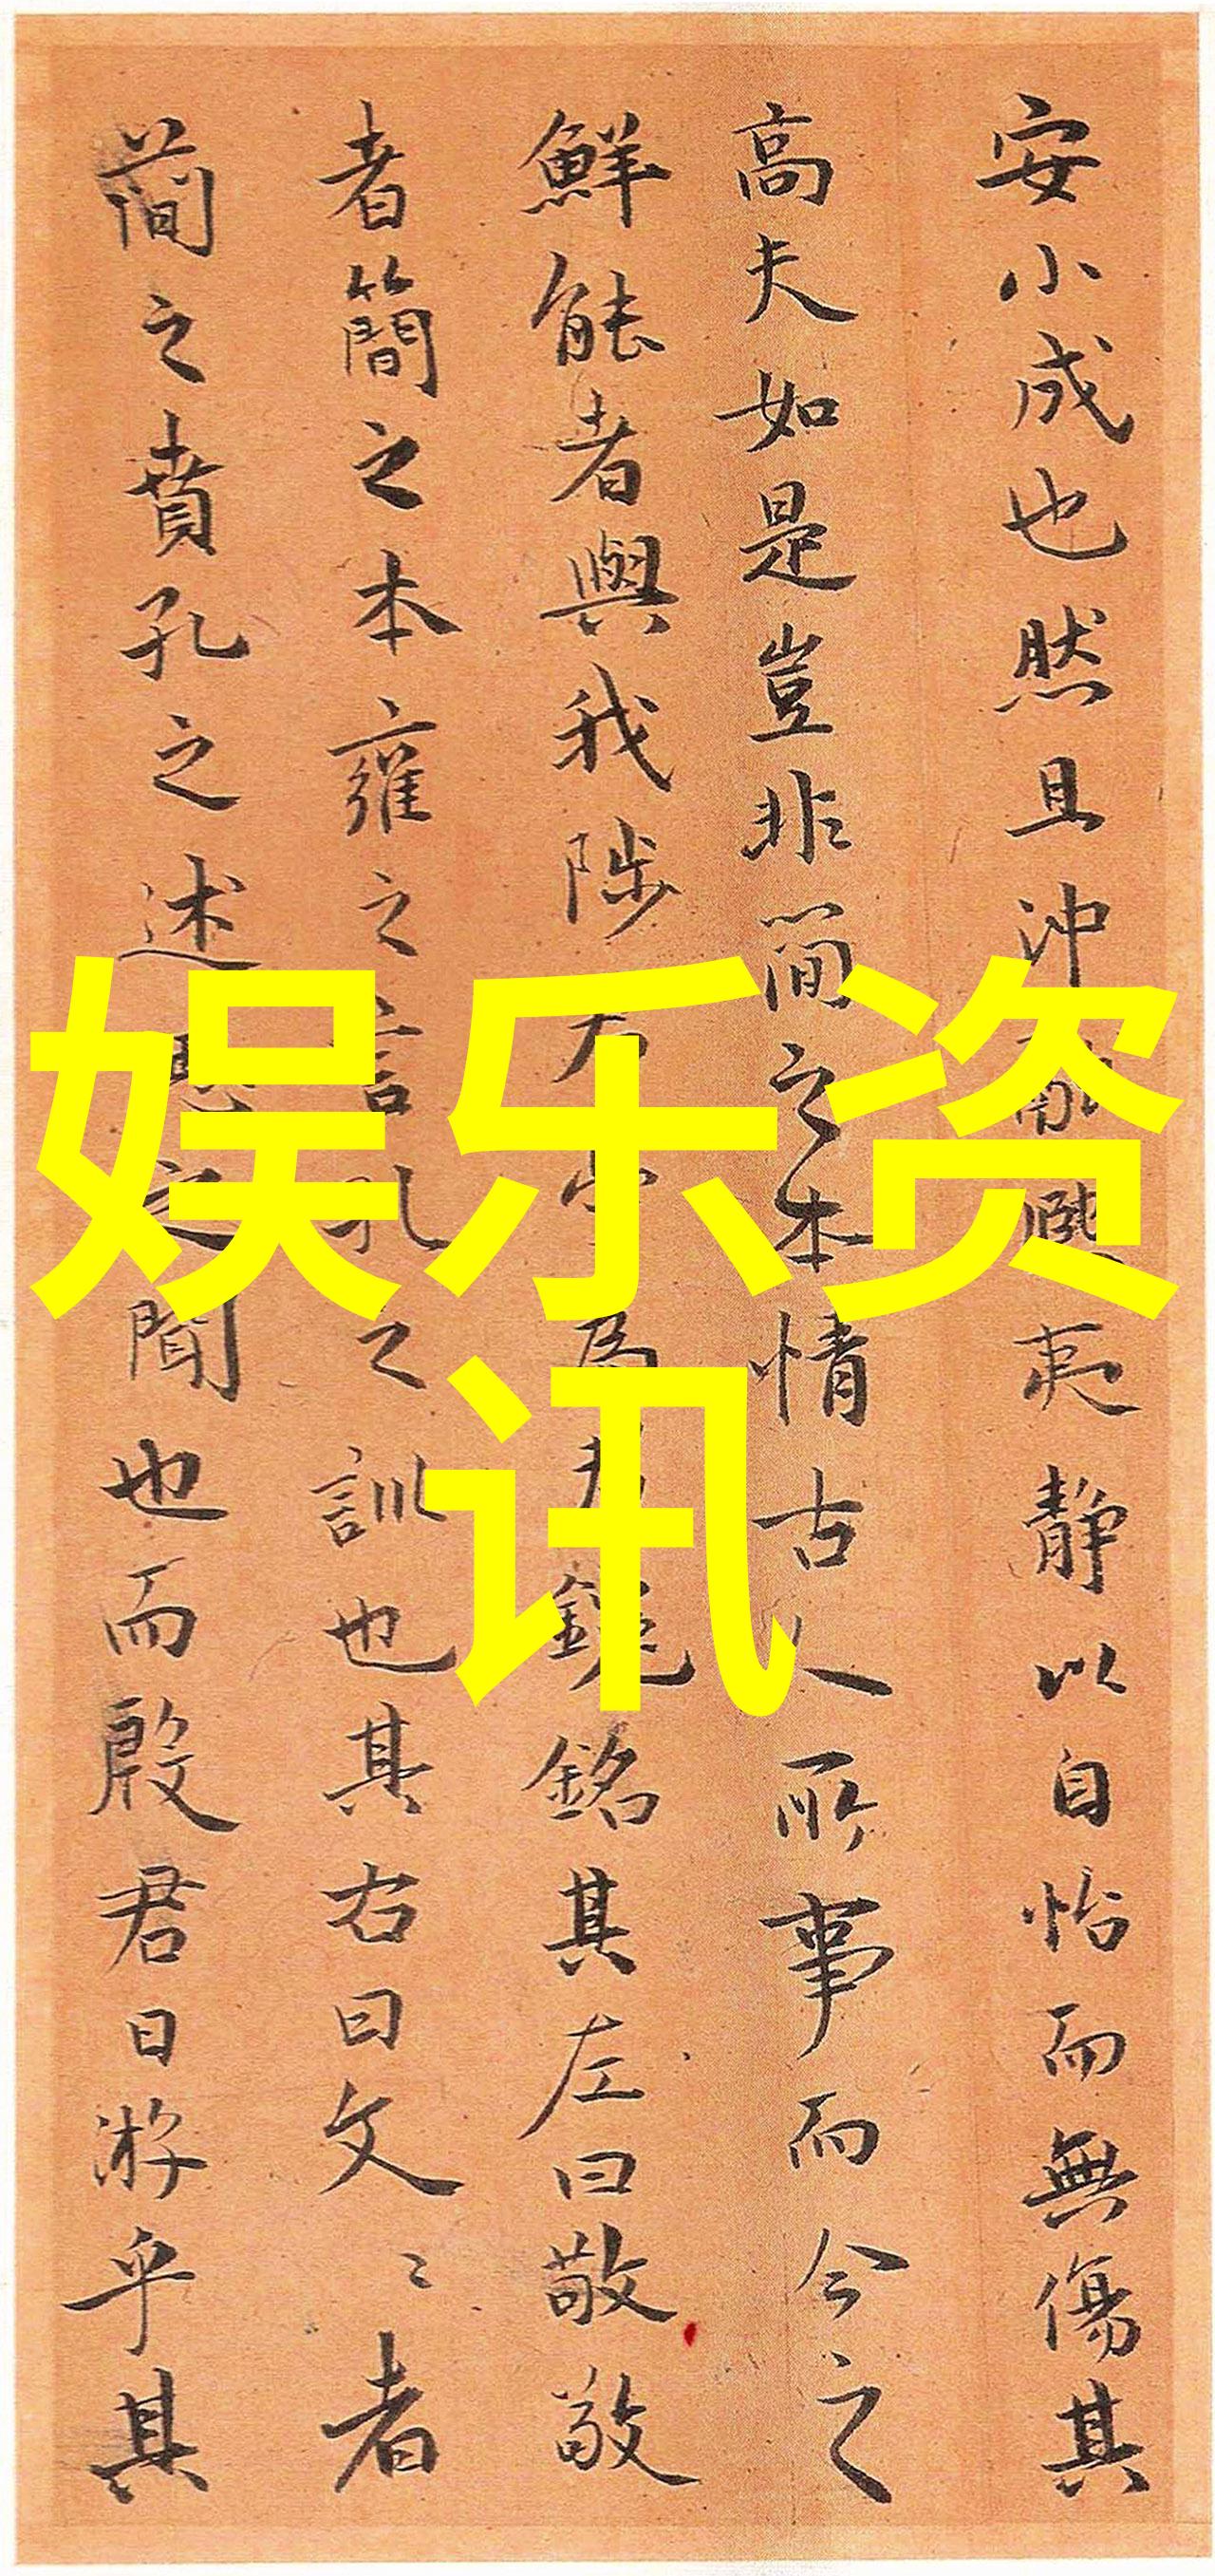 安小成也然且沖融熙夷静以自怡而無傷其
高夫如是豈非簡之本情古人所事而今之
鮮能者與我陟為者銘其左曰敬敬
者簡之本雍之言孔之訓也其右曰文〻者
簡之賁孔之述之間也而殷君日游乎其
娱乐资
讯